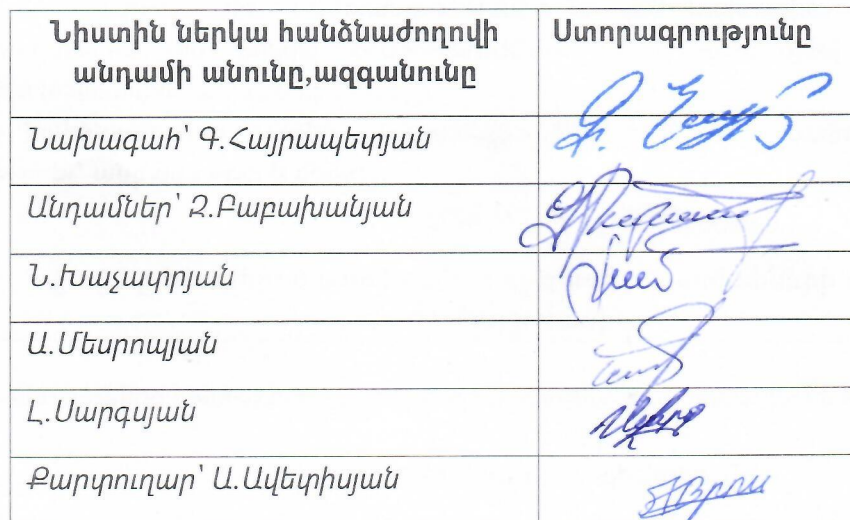 Նիստին ներկա հանձնաժողովի
անդամի անունը,ազգանունը
Ստորագրությունը
Նախագահ՝ Գ.Հայրապետյան
Անդամներ՝ Զ.Բաբախանյան
Ն.Խաչատրյան
Ա.Մեսրոպյան
Լ.Սարգսյան
Քարտուղար՝ Ա.Ավետիսյան